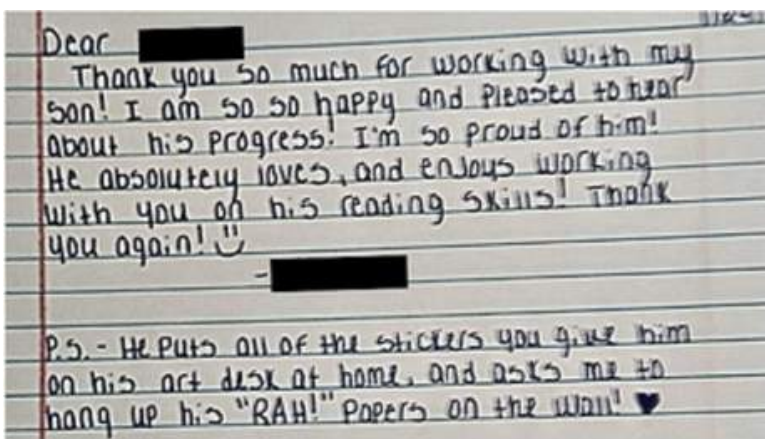 Dear
Thank you so much for working with my
son! I am so so happy and pleased to hear
about his progress! I'm so proud of him!
He absolutely loves, and enjoys working
with you on his reading skills! Thank
you again! :)
-
P.S. - He puts all of the stickers you give him
on his art desk at home, and asks me to
hang up his "RAH!" Papers on the wall! ♥